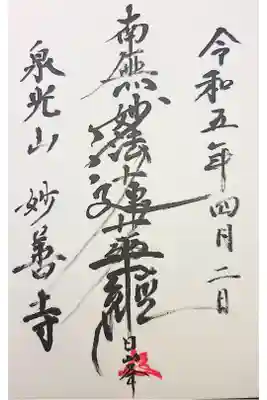 令和五年四月二日
南無妙法蓮華経
泉光山 妙善寺